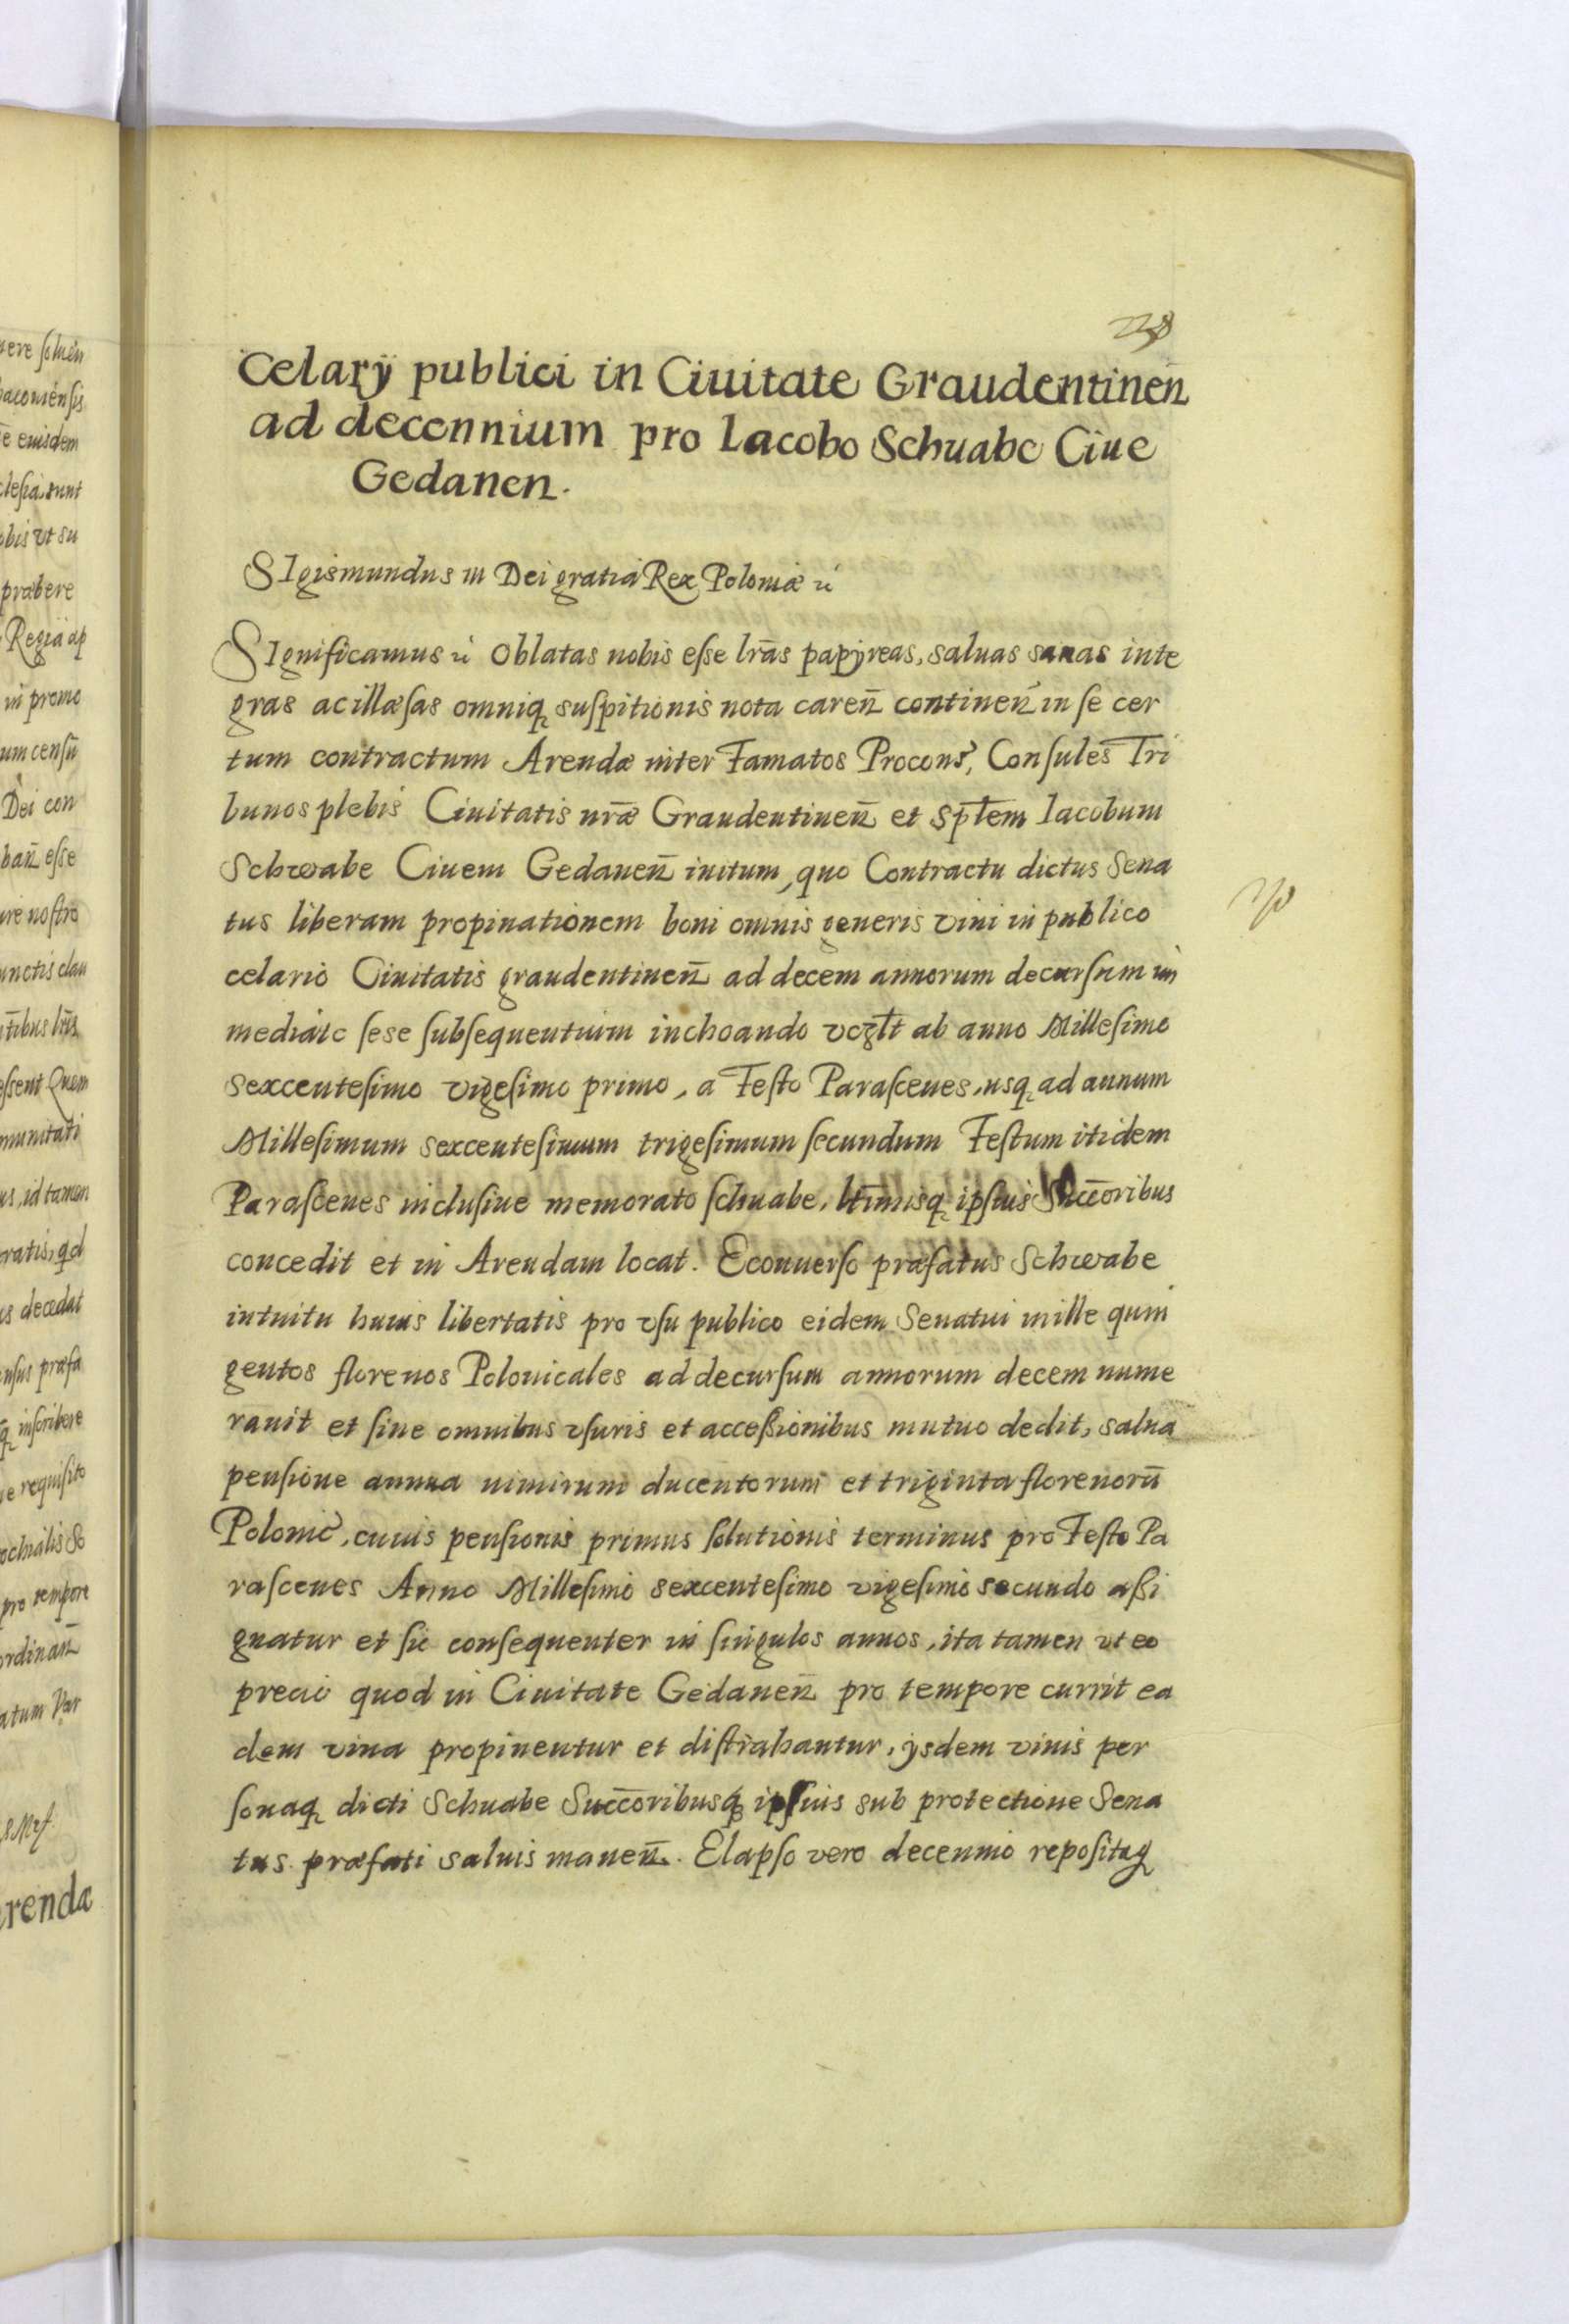 238
Celarÿ publici in Ciuitate Graudentinen̄
ad decennium pro Iacobo Schuabe Ciue
Gedanen.
SIgismundus III Dei gratia Rex Poloniæ
SIgnificamus Oblatas nobis eſse lr̄as papÿreas, saluas sanas inte
gras ac illæſas omniq̨ suſpitionis nota caren̄ continen̄ in ſe cer
tum contractum Arendæ inter Famatos Procons, Conſules Tri
bunos plebis Ciuitatis nr̄æ Graudentinen̄ et Sp̄tem Iacobum
Schwabe Ciuem Gedanen̄ initum, quo Contractu dictus Sena
tus liberam propinationem boni omnis generis vini in publico
celario Ciuitatis graudentinen̄ ad decem annorum decurſum im
mediate ſese ſubſequentium inchoando vcꝫlt ab anno Milleſimo
sexcenteſimo vigeſimo primo, a Feſto Paraſceues, usq̨ ad annum
Milleſimum sexcenteſimum trigeſimum ſecundum Feſtum itidem
Paraſceues incluſiue memorato ſchuabe, ltīmisq̨ ipſius Succ̄oribus
concedit et in Arendam locat. Econuerſo præfatus Schwabe
intuitu huius libertatis pro vſu publico eidem Senatui mille quin
gentos florenos Polonicales ad decurſum annorum decem nume
rauit et ſine omnibus vſuris et acceßionibus mutuo dedit, salua
penſione annua nimirum ducentorum et triginta florenorū
Polonic, cuius penſionis primus ſolutionis terminus pro Feſto Pa
raſceues Anno Milleſimo sexcenteſimo vigeſimo secundo aßi
gnatur et ſic conſequenter in ſingulos annos, ita tamen vt eo
precio quod in Ciuitate Gedanen̄ pro tempore currit ea
dem vina propinentur et diſtrahantur, ÿsdem vinis per
ſonaq̨ dicti Schuabe Succ̄oribusq̨ ipſius sub protectione Sena
tus præfati saluis manen̄. Elapſo vero decennio repoſitaq̨